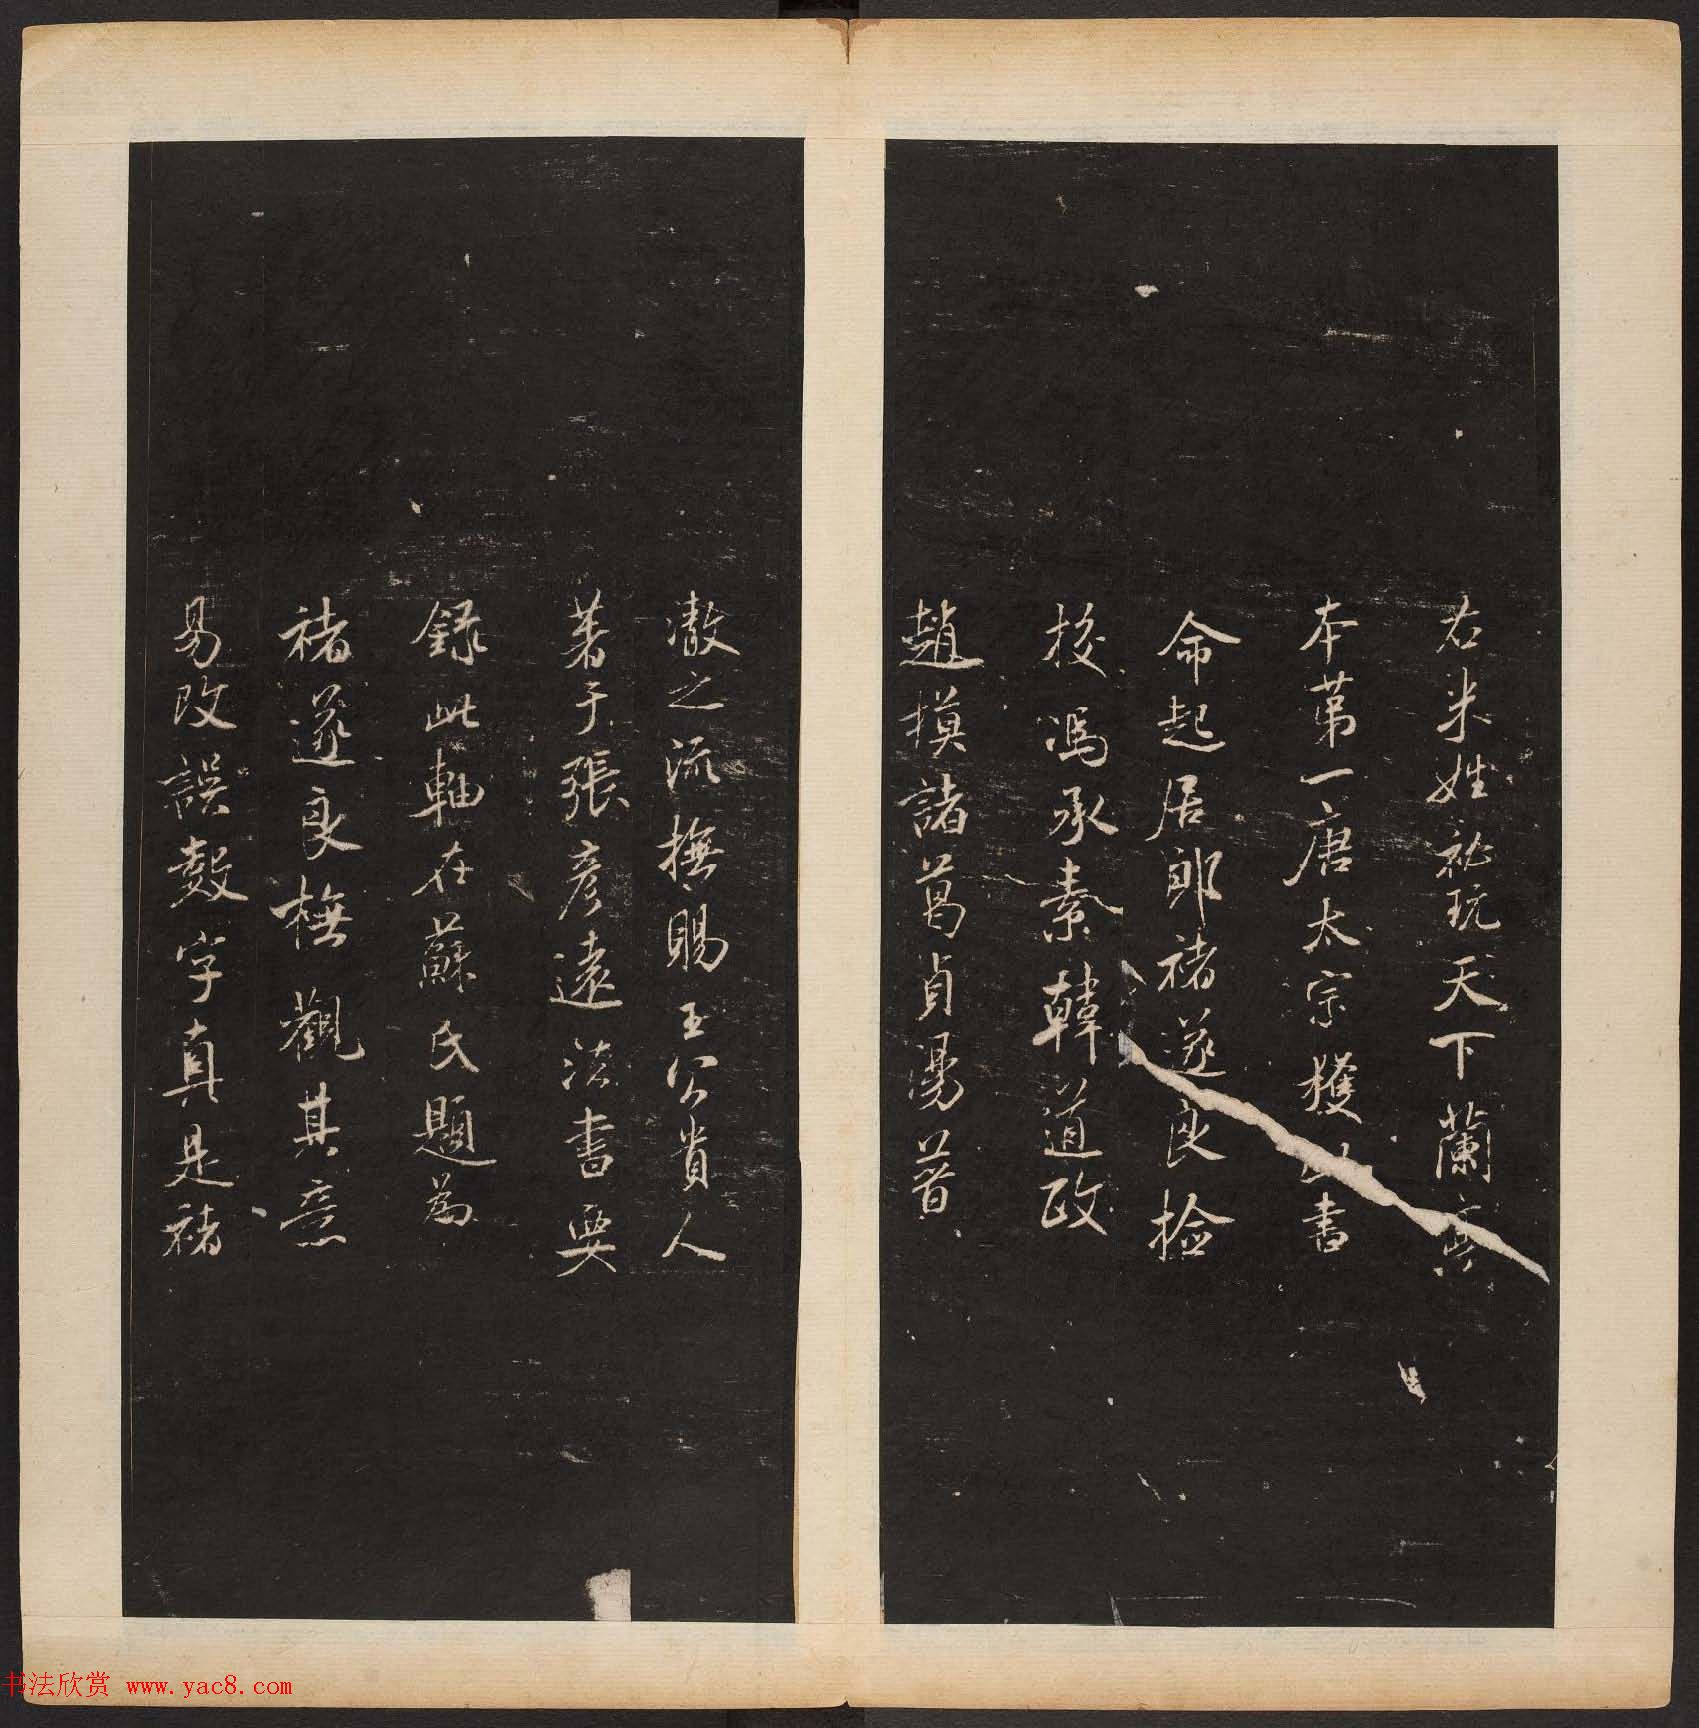 右米姓祕玩天下蘭亭
本第一唐太宗獲此書
命起居郎褚遂良檢
校馮承素韓道政
趙模諸葛貞湯普
澈之流摹賜王公貴人
著于張彥遠法書要
錄此軸在蘇氏題為
褚遂良橅觀其意
易改誤數字真是褚
书法欣赏 www.yac8.com